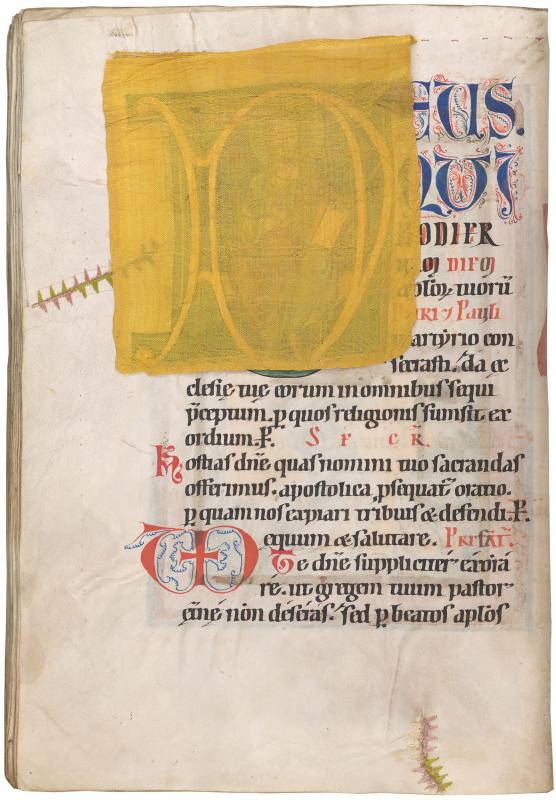 EUS.
QUI
ODIER
DIEM
aplōꝝ tuoꝝ
PETRI ⁊ Pauli
martyrio con
secrasti. da ęc
clesię tuę eorum in omnibus sequi
p̄ceptum. ꝑ quos religionis sumsit ex
ordium. P̄.
S E C R̄.
hostias dn̄e quas nomini tuo sacrandas
offerimus. apostolica ꝓsequat᷑ oratio.
ꝑ quam nos expiari tribuas & defendi. P̄.
equum & salutare. PREFAT̄.
Te dn̄e suppliciter exora
re. ut gregem tuum pastor
ętn̄e non deseras. sed ꝑ beatos aplōs